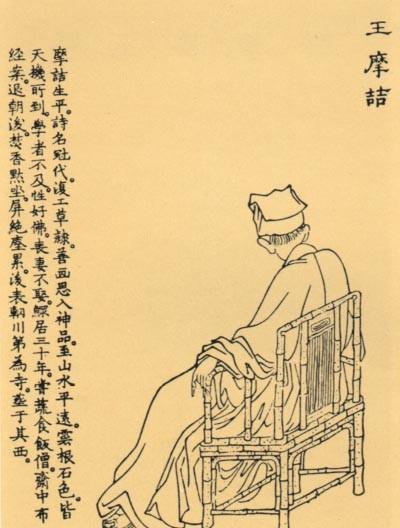 王摩詰
摩詰生平詩名冠代。復工草隸。善画思入神品。至山水平遠。雲根石色。皆
天機所到。學者不及。性好佛。喪妻不娶。鰥居三十年。嘗蔬食飯僧。齋中布
经案。退朝後焚香點坐。屏絶塵累。後表輞川第為寺。塟于其西。